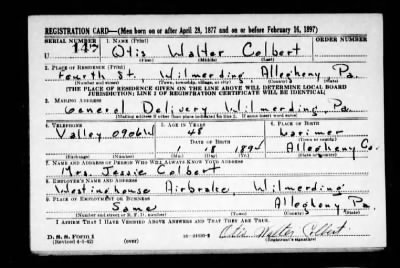 REGISTRATION CARD—(Men born on or after April 28, 1877 and on or before February 16, 1897)
SERIAL NUMBER 1. NAME (Print) ORDER NUMBER
U 143 Otis Walter Colbert
(First) (Middle) (Last)
2. PLACE OF RESIDENCE (Print)
Fourth St. Wilmerding Allegheny, Pa.
(Number and street) (Town, township, village, or city) (County) (State)
[THE PLACE OF RESIDENCE GIVEN ON THE LINE ABOVE WILL DETERMINE LOCAL BOARD
JURISDICTION; LINE 2 OF REGISTRATION CERTIFICATE WILL BE IDENTICAL]
3. MAILING ADDRESS
General Delivery Wilmerding, Pa.
[Mailing address if other than place indicated on line 2. If same insert word same]
4. TELEPHONE 5. AGE IN YEARS 6. PLACE OF BIRTH
Valley 0906W 48 Larimer
DATE OF BIRTH (Town or county)
1 8 1894 Allegheny Co.
(Exchange) (Number) (Mo.) (Day) (Yr.) (State or country)
7. NAME AND ADDRESS OF PERSON WHO WILL ALWAYS KNOW YOUR ADDRESS
Mrs. Jessie Colbert
8. EMPLOYER'S NAME AND ADDRESS
Westinghouse Airbrake, Wilmerding
9. PLACE OF EMPLOYMENT OR BUSINESS
Same Allegheny Pa.
(Number and street or R. F. D. number) (Town) (County) (State)
I AFFIRM THAT I HAVE VERIFIED ABOVE ANSWERS AND THAT THEY ARE TRUE.
D. S. S. Form 1
(Revised 4-1-42) (over) Otis Walter Colbert
(Registrant's signature)